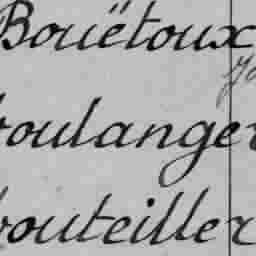 Bouëtoux
boulanger
bouteiller